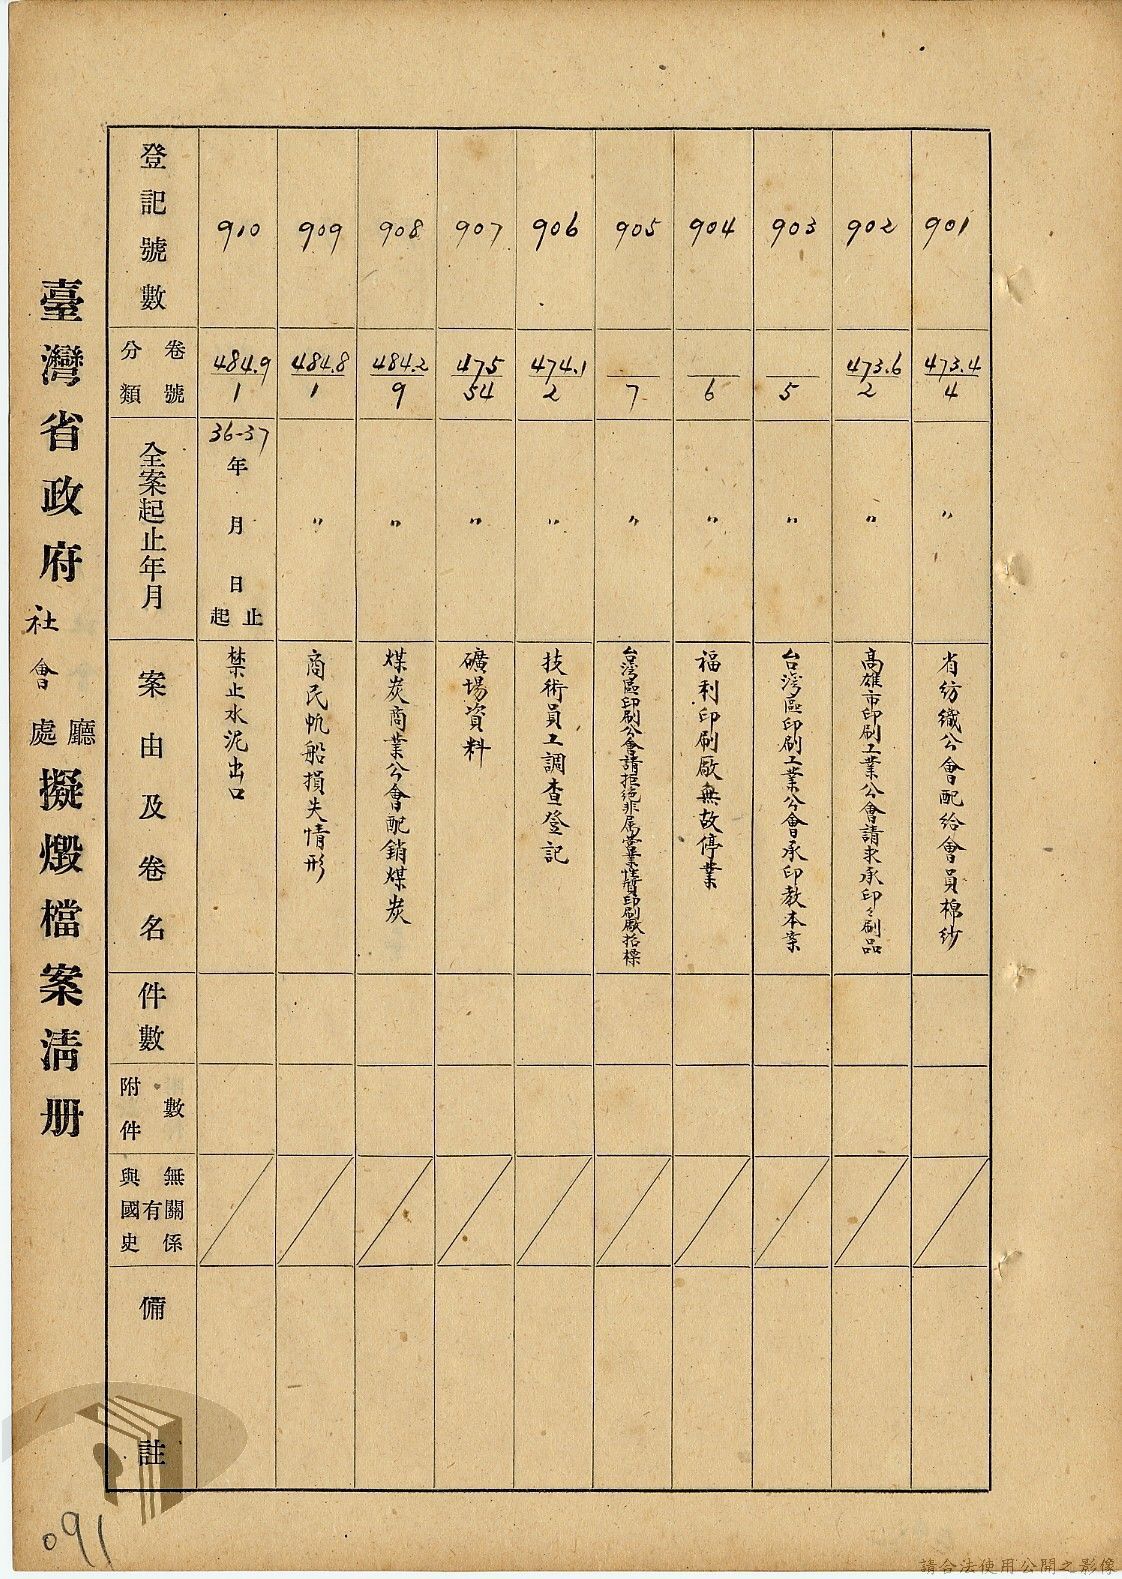 臺灣省政府社會處廳擬燬檔案清册
登記號數
分類卷號
全案起止年月
案由及卷名
件數
附件數
與國史有無關係
備註
910
484.9
1
36-37
年月日起止
禁止水泥出口
909
484.8
1
〃
商民帆船損失情形
908
484.2
9
〃
煤炭商業公會配銷煤炭
907
475
54
〃
礦場資料
906
474.1
2
〃
技術員工調查登記
905
7
〃
台灣區印刷公會請拒絕非屬營業性質印刷廠投標
904
6
〃
福利印刷廠無故停業
903
5
〃
台灣區印刷工業公會承印教本案
902
473.6
2
〃
高雄市印刷工業公會請求承印々刷品
901
473.4
4
〃
省紡織公會配給會員棉紗
091
請合法使用公開之影像